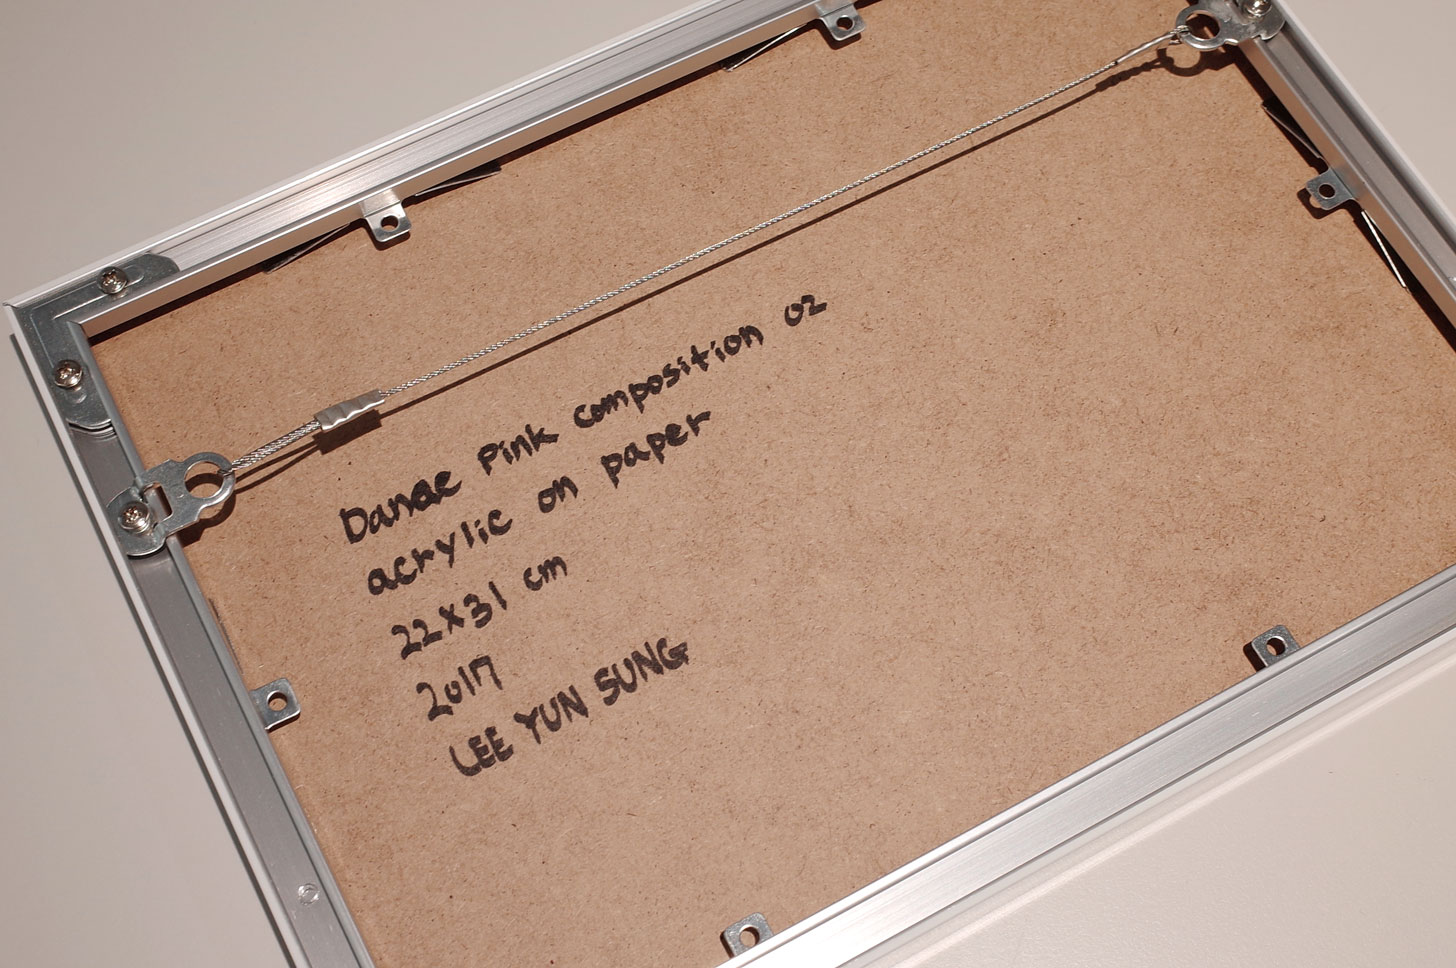 Danae Pink composition 02
acrylic on paper
22x31 cm
2017
LEE YUN SUNG